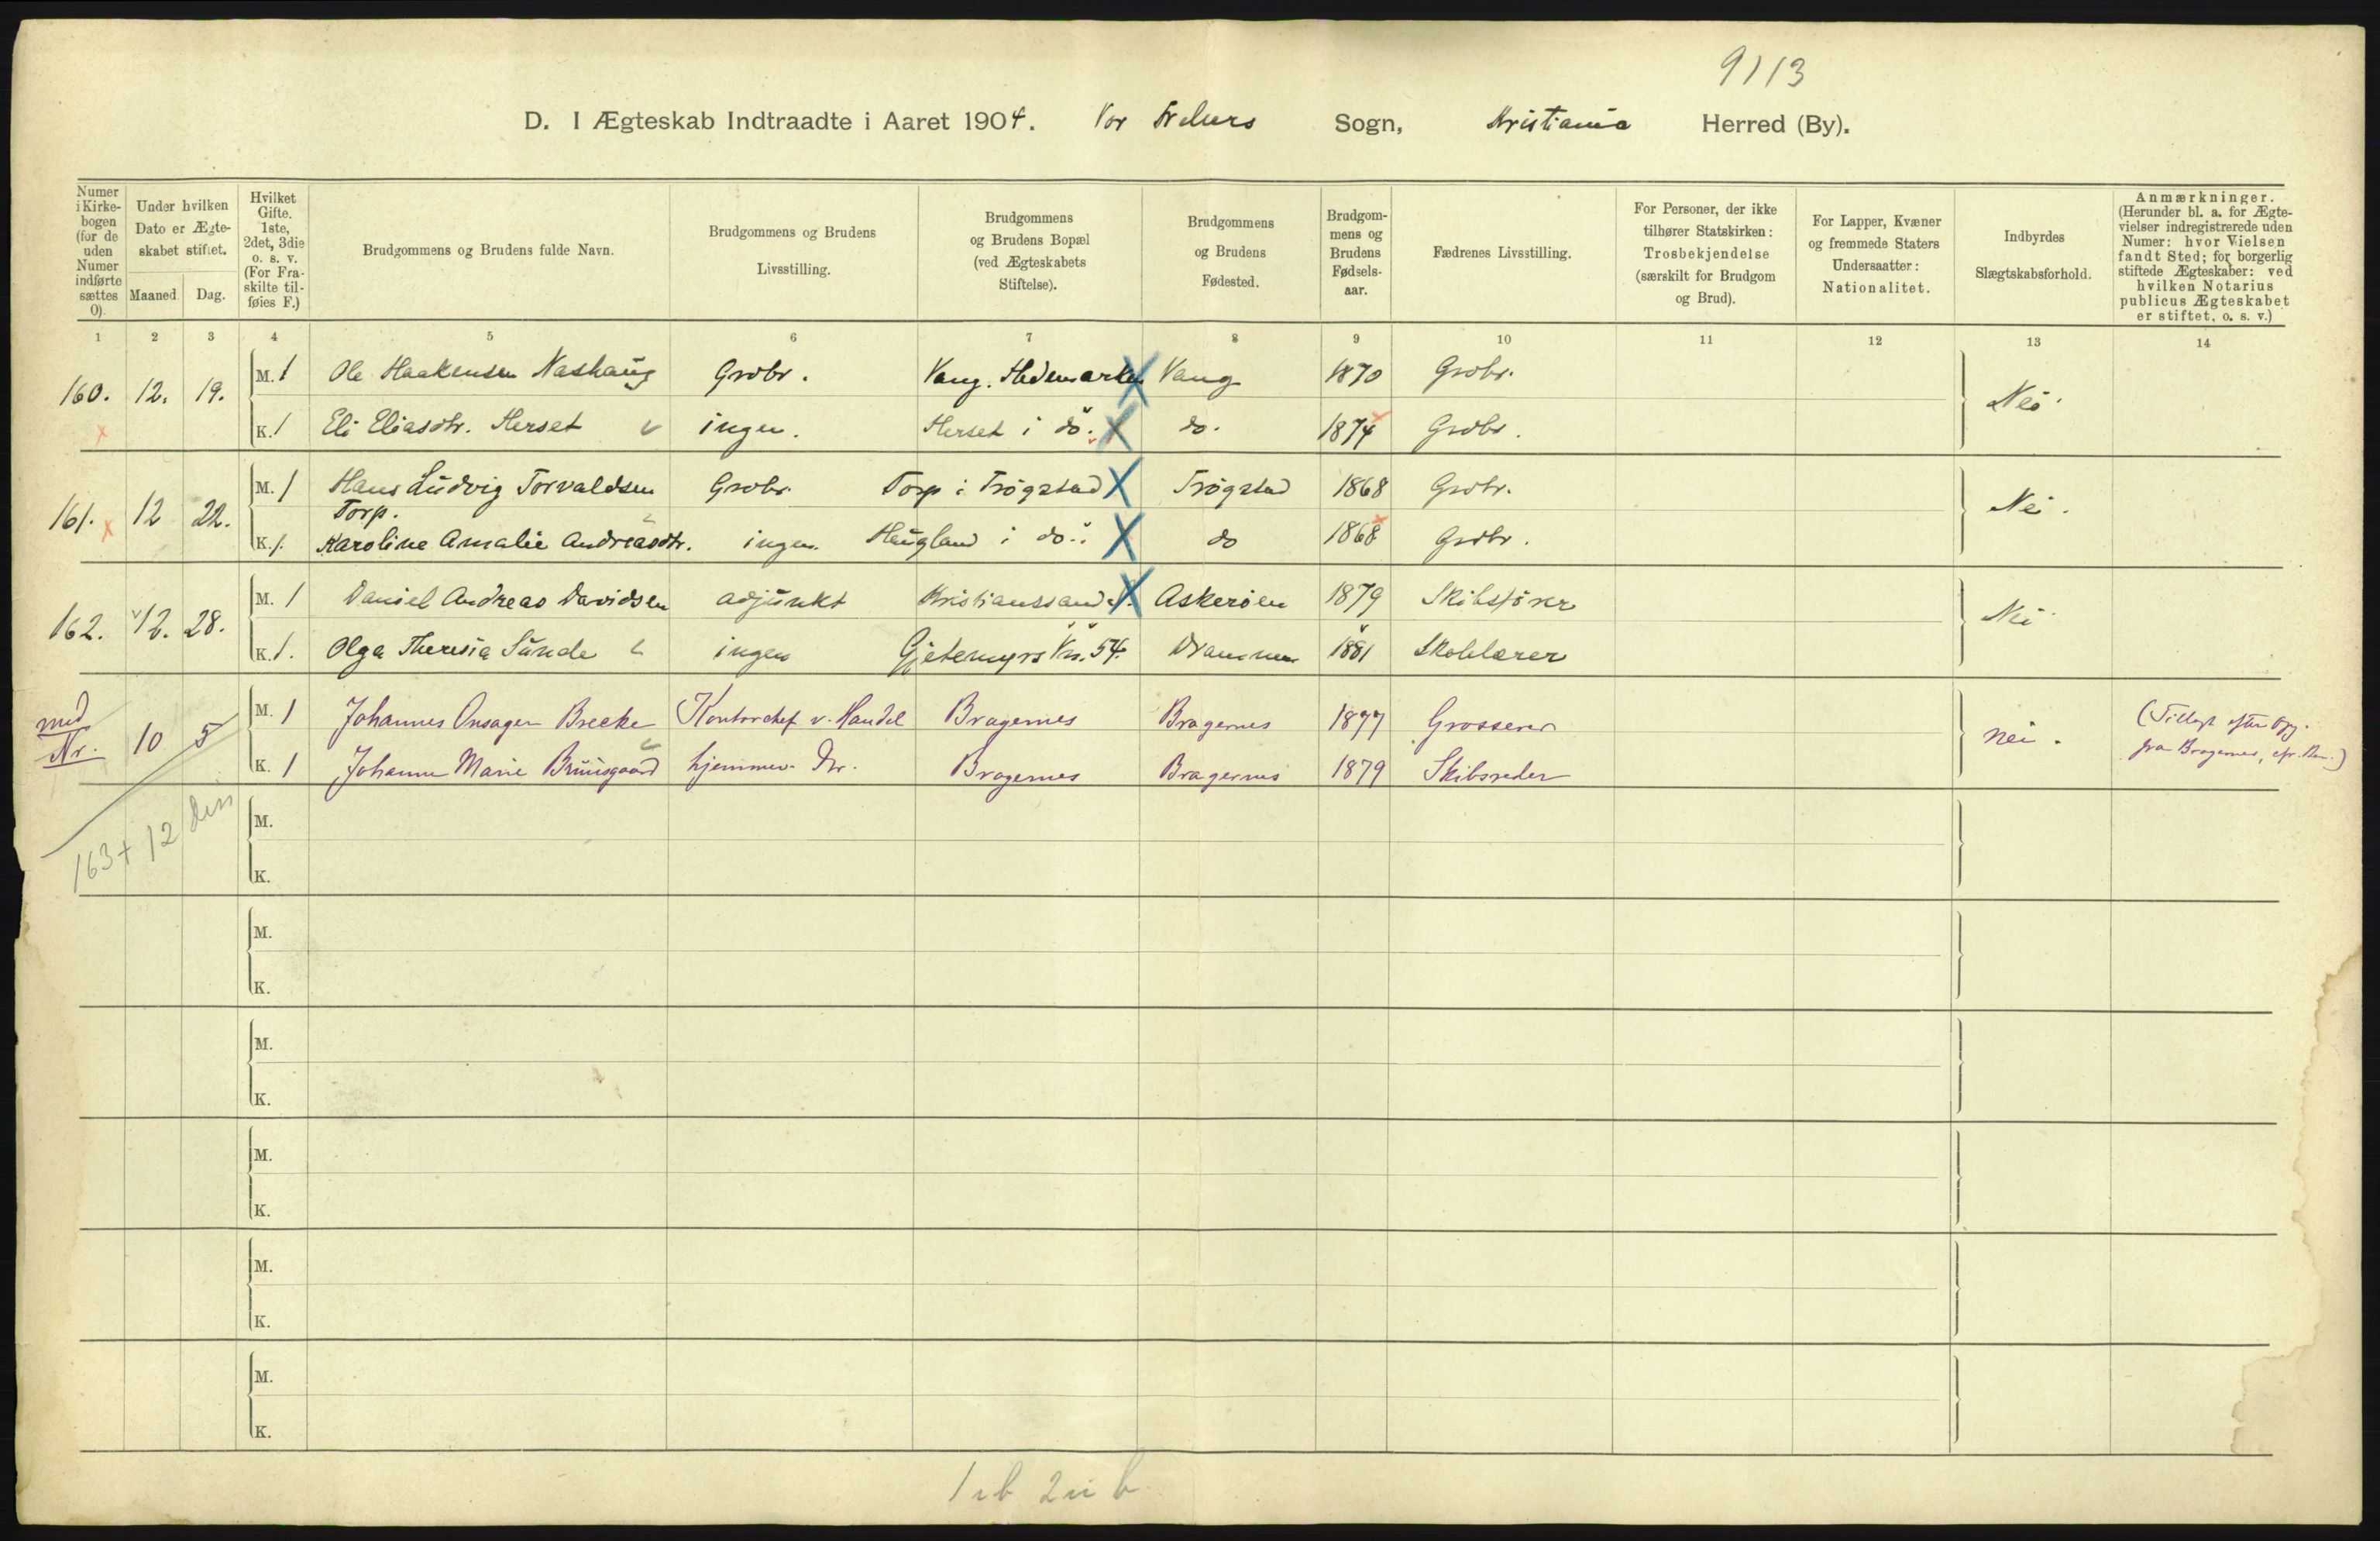 9113
D. I Ægteskab Indtraadte i Aaret 1904. Vor Frelsers Sogn, Kristiania Herred (By).
Numer i Kirke-bogen (for de uden Numer indførte sættes 0).
Under hvilken Dato er Ægte-skabet stiftet.
Maaned. Dag.
Hvilket Gifte. 1ste, 2det, 3die o. s. v. (For Fra-skilte til-føies F.)
Brudgommens og Brudens fulde Navn.
Brudgommens og Brudens Livsstilling.
Brudgommens og Brudens Bopæl (ved Ægteskabets Stiftelse).
Brudgommens og Brudens Fødested.
Brudgom-mens og Brudens Fødsels-aar.
Fædrenes Livsstilling.
For Personer, der ikke tilhører Statskirken: Trosbekjendelse (særskilt for Brudgom og Brud).
For Lapper, Kvæner og fremmede Staters Undersaatter: Nationalitet.
Indbyrdes Slægtskabsforhold.
Anmærkninger. (Herunder bl. a. for Ægte-vielser indregistrerede uden Numer: hvor Vielsen fandt Sted; for borgerlig stiftede Ægteskaber: ved hvilken Notarius publicus Ægteskabet er stiftet, o. s. v.)
1 2 3 4 5 6 7 8 9 10 11 12 13 14
160. 12. 19. M. 1 Ole Haakensen Nashaug Grdbr. Vang. Hedemarken Vang 1870 Grdbr. Nei.
K. 1 Eli Eliasdtr. Herset ingen. Herset i do. do. 1874 Grdbr.
161. 12 22. M. 1 Hans Ludvig Torvaldsen Torp. Grdbr. Torp i Trøgstad Trøgstad 1868 Grdbr. Nei.
K. 1. Karoline Amalie Andreasdtr. ingen. Haugland i do. do 1868 Grdbr.
162. 12. 28. M. 1 Daniel Andreas Davidsen adjunkt Kristianssand Askerøien 1879 Skibsfører Nei
K. 1. Olga Theresia Sunde ingen Gjetemyrs Vn. 54. Drammen 1881 Skolelærer
Nr. 10 5 M. 1 Johannes Onsager Brecke Kontorchef v. Handel Bragernes Bragernes 1877 Grosserer nei. (Tillagt efter Opg. fra Bragernes,
K. 1 Johanne Marie Bruusgaard hjemmev. Dtr. Bragernes Bragernes 1879 Skibsreder
163 + 12
M.
K.
M.
K.
M.
K.
M.
K.
M.
K.
M.
K.